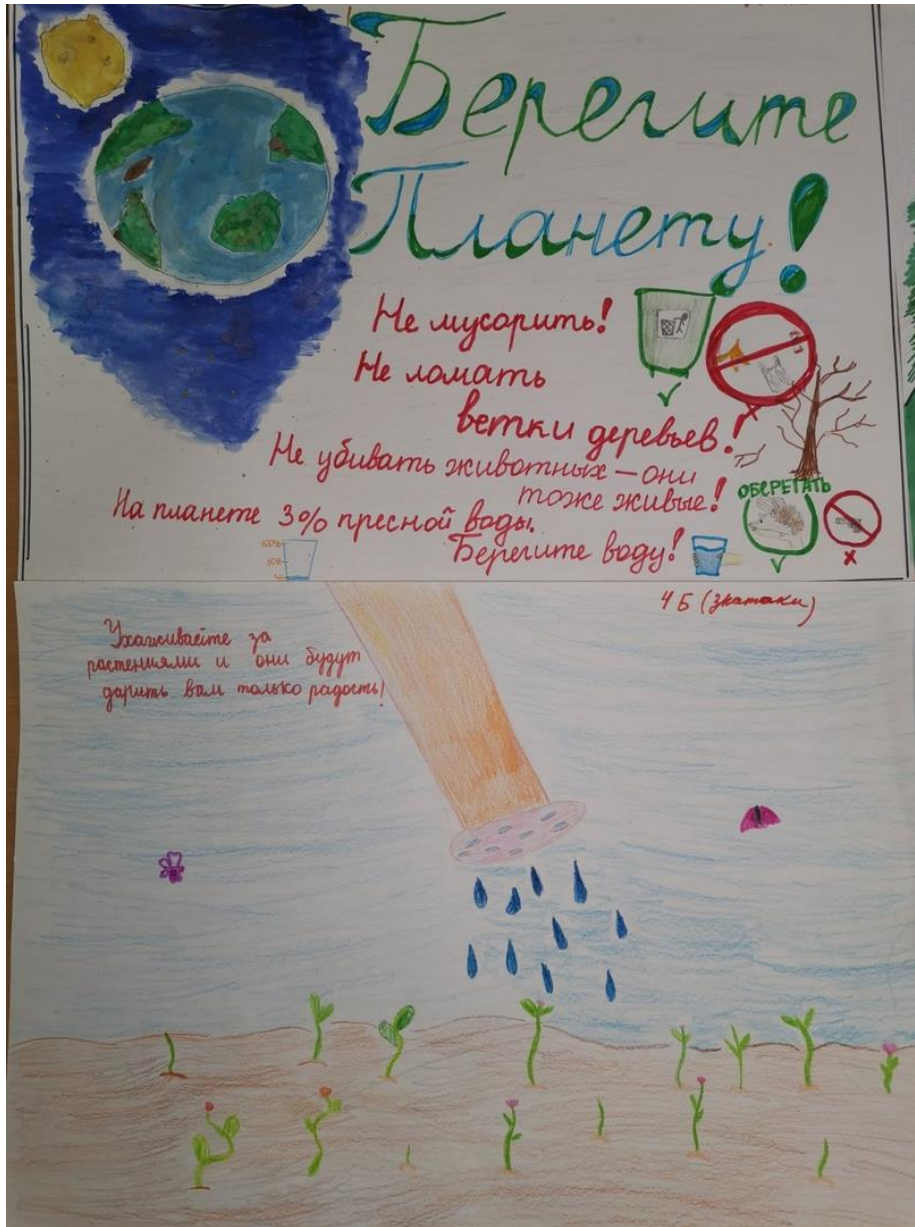 Берегите
Планету!
Не мусорить!
Не ломать
ветки деревьев!
Не убивать животных — они
тоже живые!
ОБЕРЕГАТЬ
На планете 3% пресной воды.
Берегите воду!
100%
50%
4 Б (Знатоки)
Ухаживайте за
растениями и они будут
дарить вам только радость!